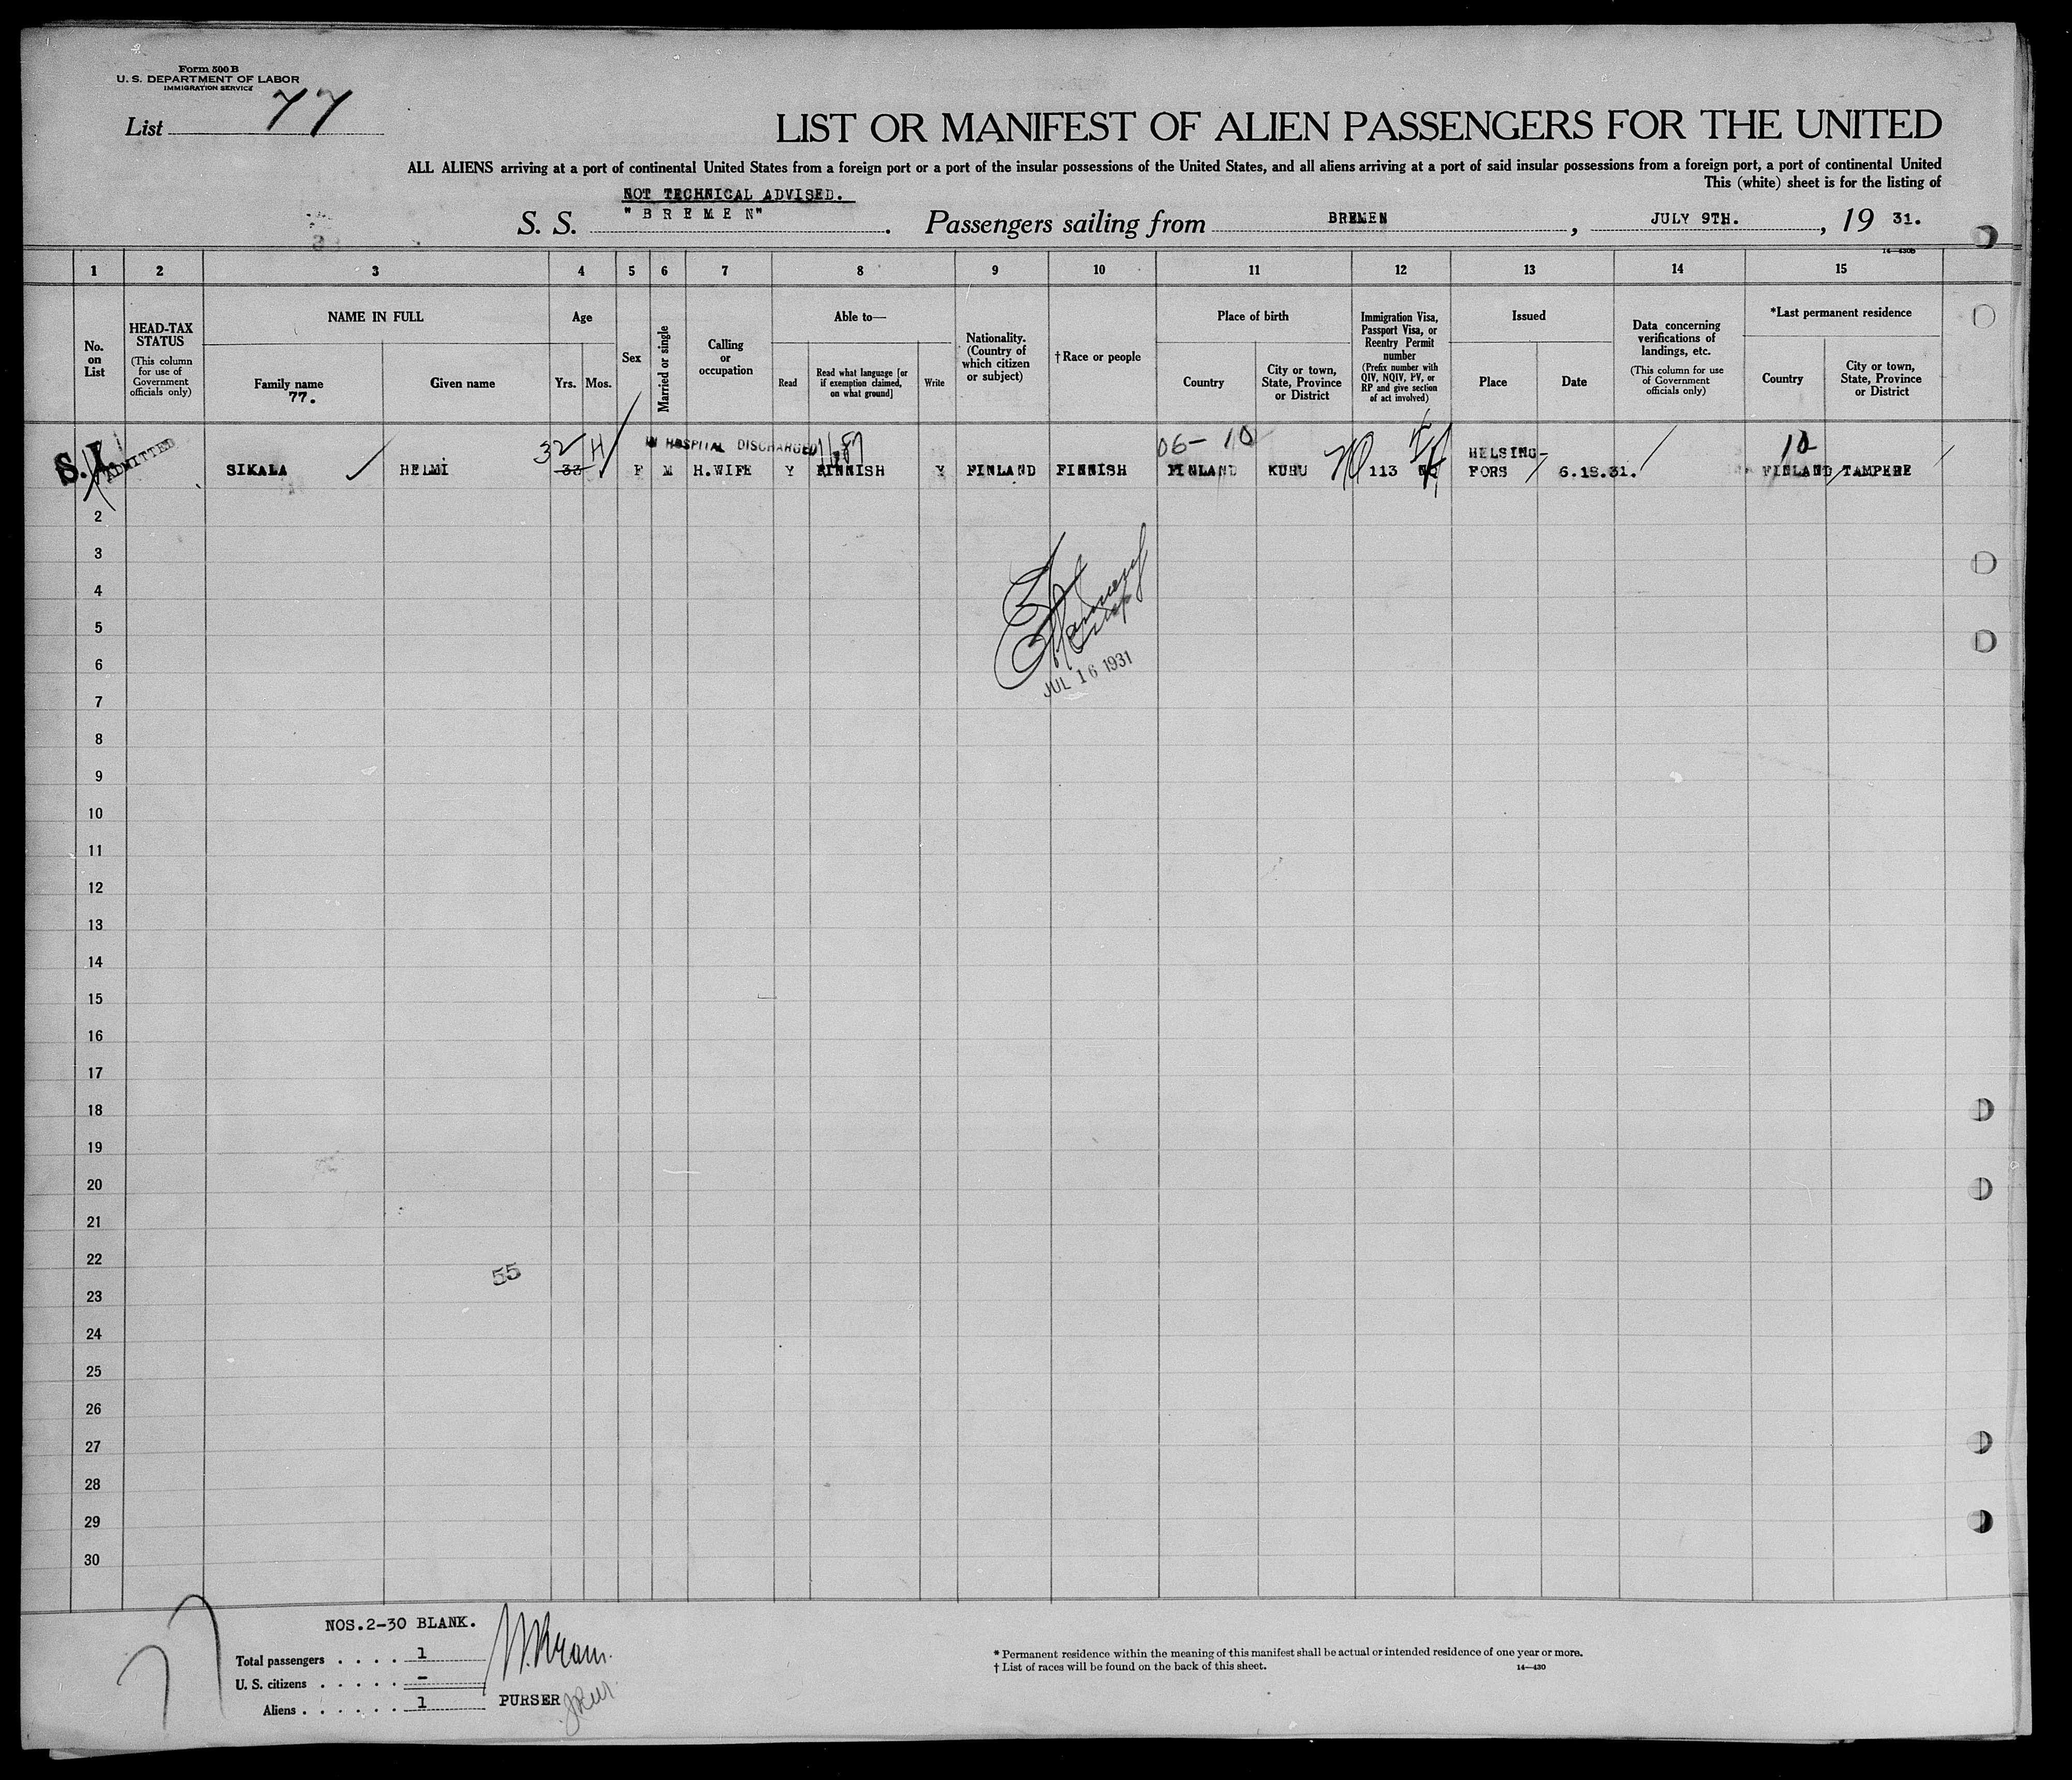 Form 500 B
U. S. DEPARTMENT OF LABOR
IMMIGRATION SERVICE
List 77
LIST OR MANIFEST OF ALIEN PASSENGERS FOR THE UNITED
ALL ALIENS arriving at a port of continental United States from a foreign port or a port of the insular possessions of the United States, and all aliens arriving at a port of said insular possessions from a foreign port, a port of continental United
This (white) sheet is for the listing of
NOT TECHNICAL ADVISED.
S. S. "BREMEN". Passengers sailing from BREMEN, JULY 9TH., 19 31.
14—430B
1 2 3 4 5 6 7 8 9 10 11 12 13 14 15
No. on List
HEAD-TAX STATUS
(This column for use of Government officials only)
NAME IN FULL
Family name
77.
Given name
Age
Yrs. Mos.
Sex
Married or single
Calling or occupation
Able to—
Read
Read what language [or if exemption claimed, on what ground]
Write
Nationality. (Country of which citizen or subject)
†Race or people
Place of birth
Country
City or town, State, Province or District
Immigration Visa, Passport Visa, or Reentry Permit number
(Prefix number with QIV, NQIV, PV, or RP and give section of act involved)
Issued
Place
Date
Data concerning verifications of landings, etc.
(This column for use of Government officials only)
*Last permanent residence
Country
City or town, State, Province or District
S.I. ADMITTED
32 H IN HOSPITAL DISCHARGED 06- 10 HELSING- 10
SIKALA HELMI 33 F M H.WIFE Y FINNISH Y FINLAND FINNISH FINLAND KURU 113 FORS 6.18.31. FINLAND TAMPERE
2
3
4
5
6
JUL 16 1931
7
8
9
10
11
12
13
14
15
16
17
18
19
20
21
22
55
23
24
25
26
27
28
29
30
NOS.2-30 BLANK.
Total passengers . . . . 1
U. S. citizens . . . . . -
Aliens . . . . . . 1
PURSER
* Permanent residence within the meaning of this manifest shall be actual or intended residence of one year or more.
† List of races will be found on the back of this sheet.
14—430